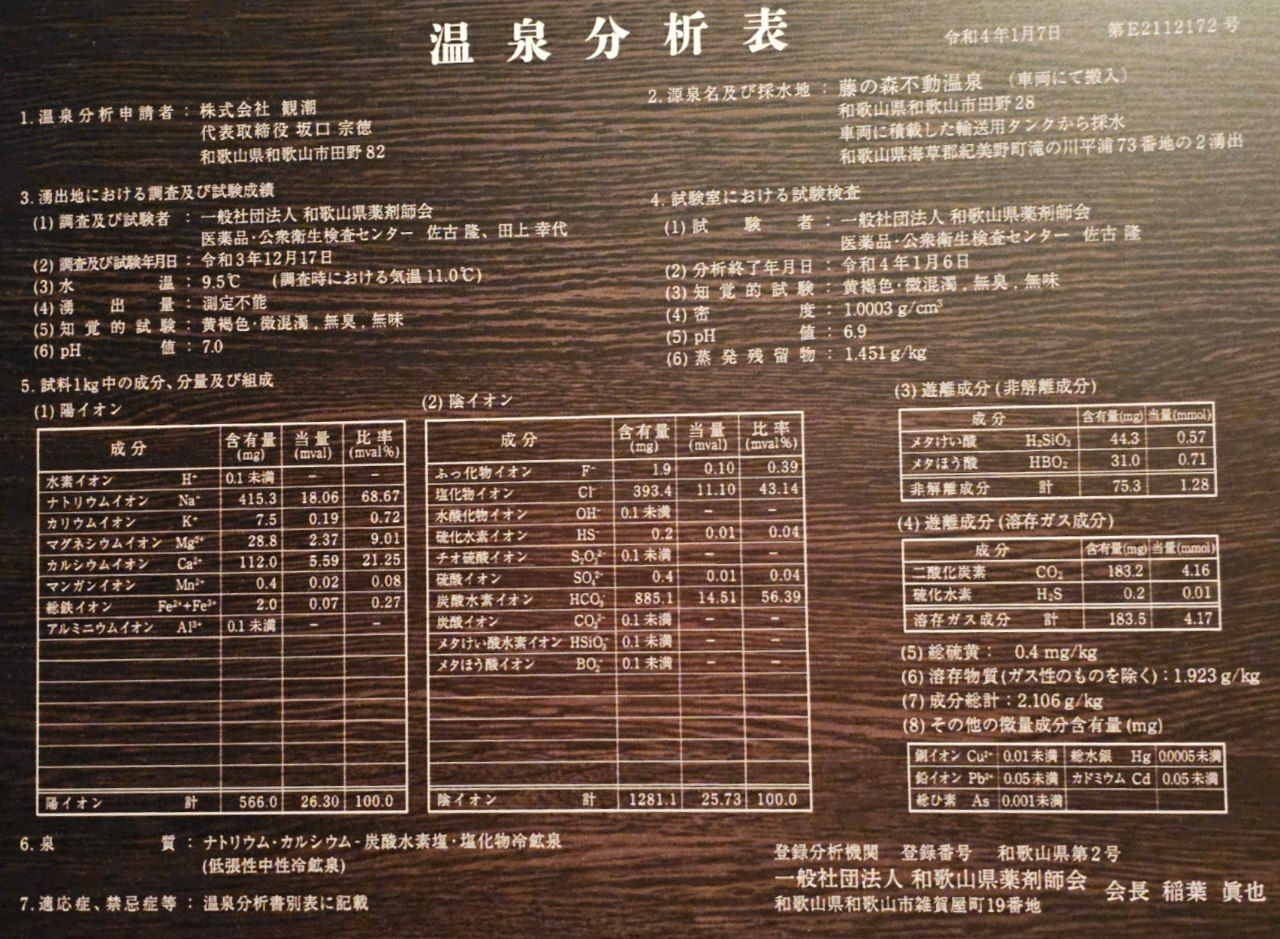 温泉分析表
令和4年1月7日 第E2112172号
1.温泉分析申請者：株式会社 観潮
代表取締役 坂口 宗徳
和歌山県和歌山市田野82
2.源泉名及び採水地：藤の森不動温泉 （車両にて搬入）
和歌山県和歌山市田野28
車両に積載した輸送用タンクから採水
和歌山県海草郡紀美野町滝の川平浦73番地の2湧出
3.湧出地における調査及び試験成績
(1)調査及び試験者：一般社団法人 和歌山県薬剤師会
医薬品・公衆衛生検査センター 佐古 隆、田上 幸代
(2)調査及び試験年月日：令和3年12月17日
(3)水温：9.5℃ (調査時における気温11.0℃)
(4)湧出量：測定不能
(5)知覚的試験：黄褐色・微混濁,無臭,無味
(6)pH値：7.0
4.試験室における試験検査
(1)試験者：一般社団法人 和歌山県薬剤師会
医薬品・公衆衛生検査センター 佐古 隆
(2)分析終了年月日：令和4年1月6日
(3)知覚的試験：黄褐色・微混濁,無臭,無味
(4)密度：1.0003 g/cm³
(5)pH値：6.9
(6)蒸発残留物：1.451 g/kg
5.試料1kg中の成分、分量及び組成
(1)陽イオン
成分 含有量(mg) 当量(mval) 比率(mval%)
水素イオン H⁺ 0.1未満 － －
ナトリウムイオン Na⁺ 415.3 18.06 68.67
カリウムイオン K⁺ 7.5 0.19 0.72
マグネシウムイオン Mg²⁺ 28.8 2.37 9.01
カルシウムイオン Ca²⁺ 112.0 5.59 21.25
マンガンイオン Mn²⁺ 0.4 0.02 0.08
総鉄イオン Fe²⁺+Fe³⁺ 2.0 0.07 0.27
アルミニウムイオン Al³⁺ 0.1未満 － －
陽イオン 計 566.0 26.30 100.0
(2)陰イオン
成分 含有量(mg) 当量(mval) 比率(mval%)
ふっ化物イオン F⁻ 1.9 0.10 0.39
塩化物イオン Cl⁻ 393.4 11.10 43.14
水酸化物イオン OH⁻ 0.1未満 － －
硫化水素イオン HS⁻ 0.2 0.01 0.04
チオ硫酸イオン S₂O₃²⁻ 0.1未満 － －
硫酸イオン SO₄²⁻ 0.4 0.01 0.04
炭酸水素イオン HCO₃⁻ 885.1 14.51 56.39
炭酸イオン CO₃²⁻ 0.1未満 － －
メタけい酸水素イオン HSiO₃⁻ 0.1未満 － －
メタほう酸イオン BO₂⁻ 0.1未満 － －
陰イオン 計 1281.1 25.73 100.0
(3)遊離成分(非解離成分)
成分 含有量(mg) 当量(mmol)
メタけい酸 H₂SiO₃ 44.3 0.57
メタほう酸 HBO₂ 31.0 0.71
非解離成分 計 75.3 1.28
(4)遊離成分(溶存ガス成分)
成分 含有量(mg) 当量(mmol)
二酸化炭素 CO₂ 183.2 4.16
硫化水素 H₂S 0.2 0.01
溶存ガス成分 計 183.5 4.17
(5)総硫黄： 0.4 mg/kg
(6)溶存物質(ガス性のものを除く)：1.923 g/kg
(7)成分総計：2.106 g/kg
(8)その他の微量成分含有量(mg)
銅イオン Cu²⁺ 0.01未満 総水銀 Hg 0.0005未満
鉛イオン Pb²⁺ 0.05未満 カドミウム Cd 0.05未満
総ひ素 As 0.001未満
6.泉質：ナトリウム・カルシウム-炭酸水素塩・塩化物冷鉱泉
(低張性中性冷鉱泉)
7.適応症、禁忌症等：温泉分析書別表に記載
登録分析機関 登録番号 和歌山県第2号
一般社団法人 和歌山県薬剤師会 会長 稲葉 眞也
和歌山県和歌山市雑賀屋町19番地